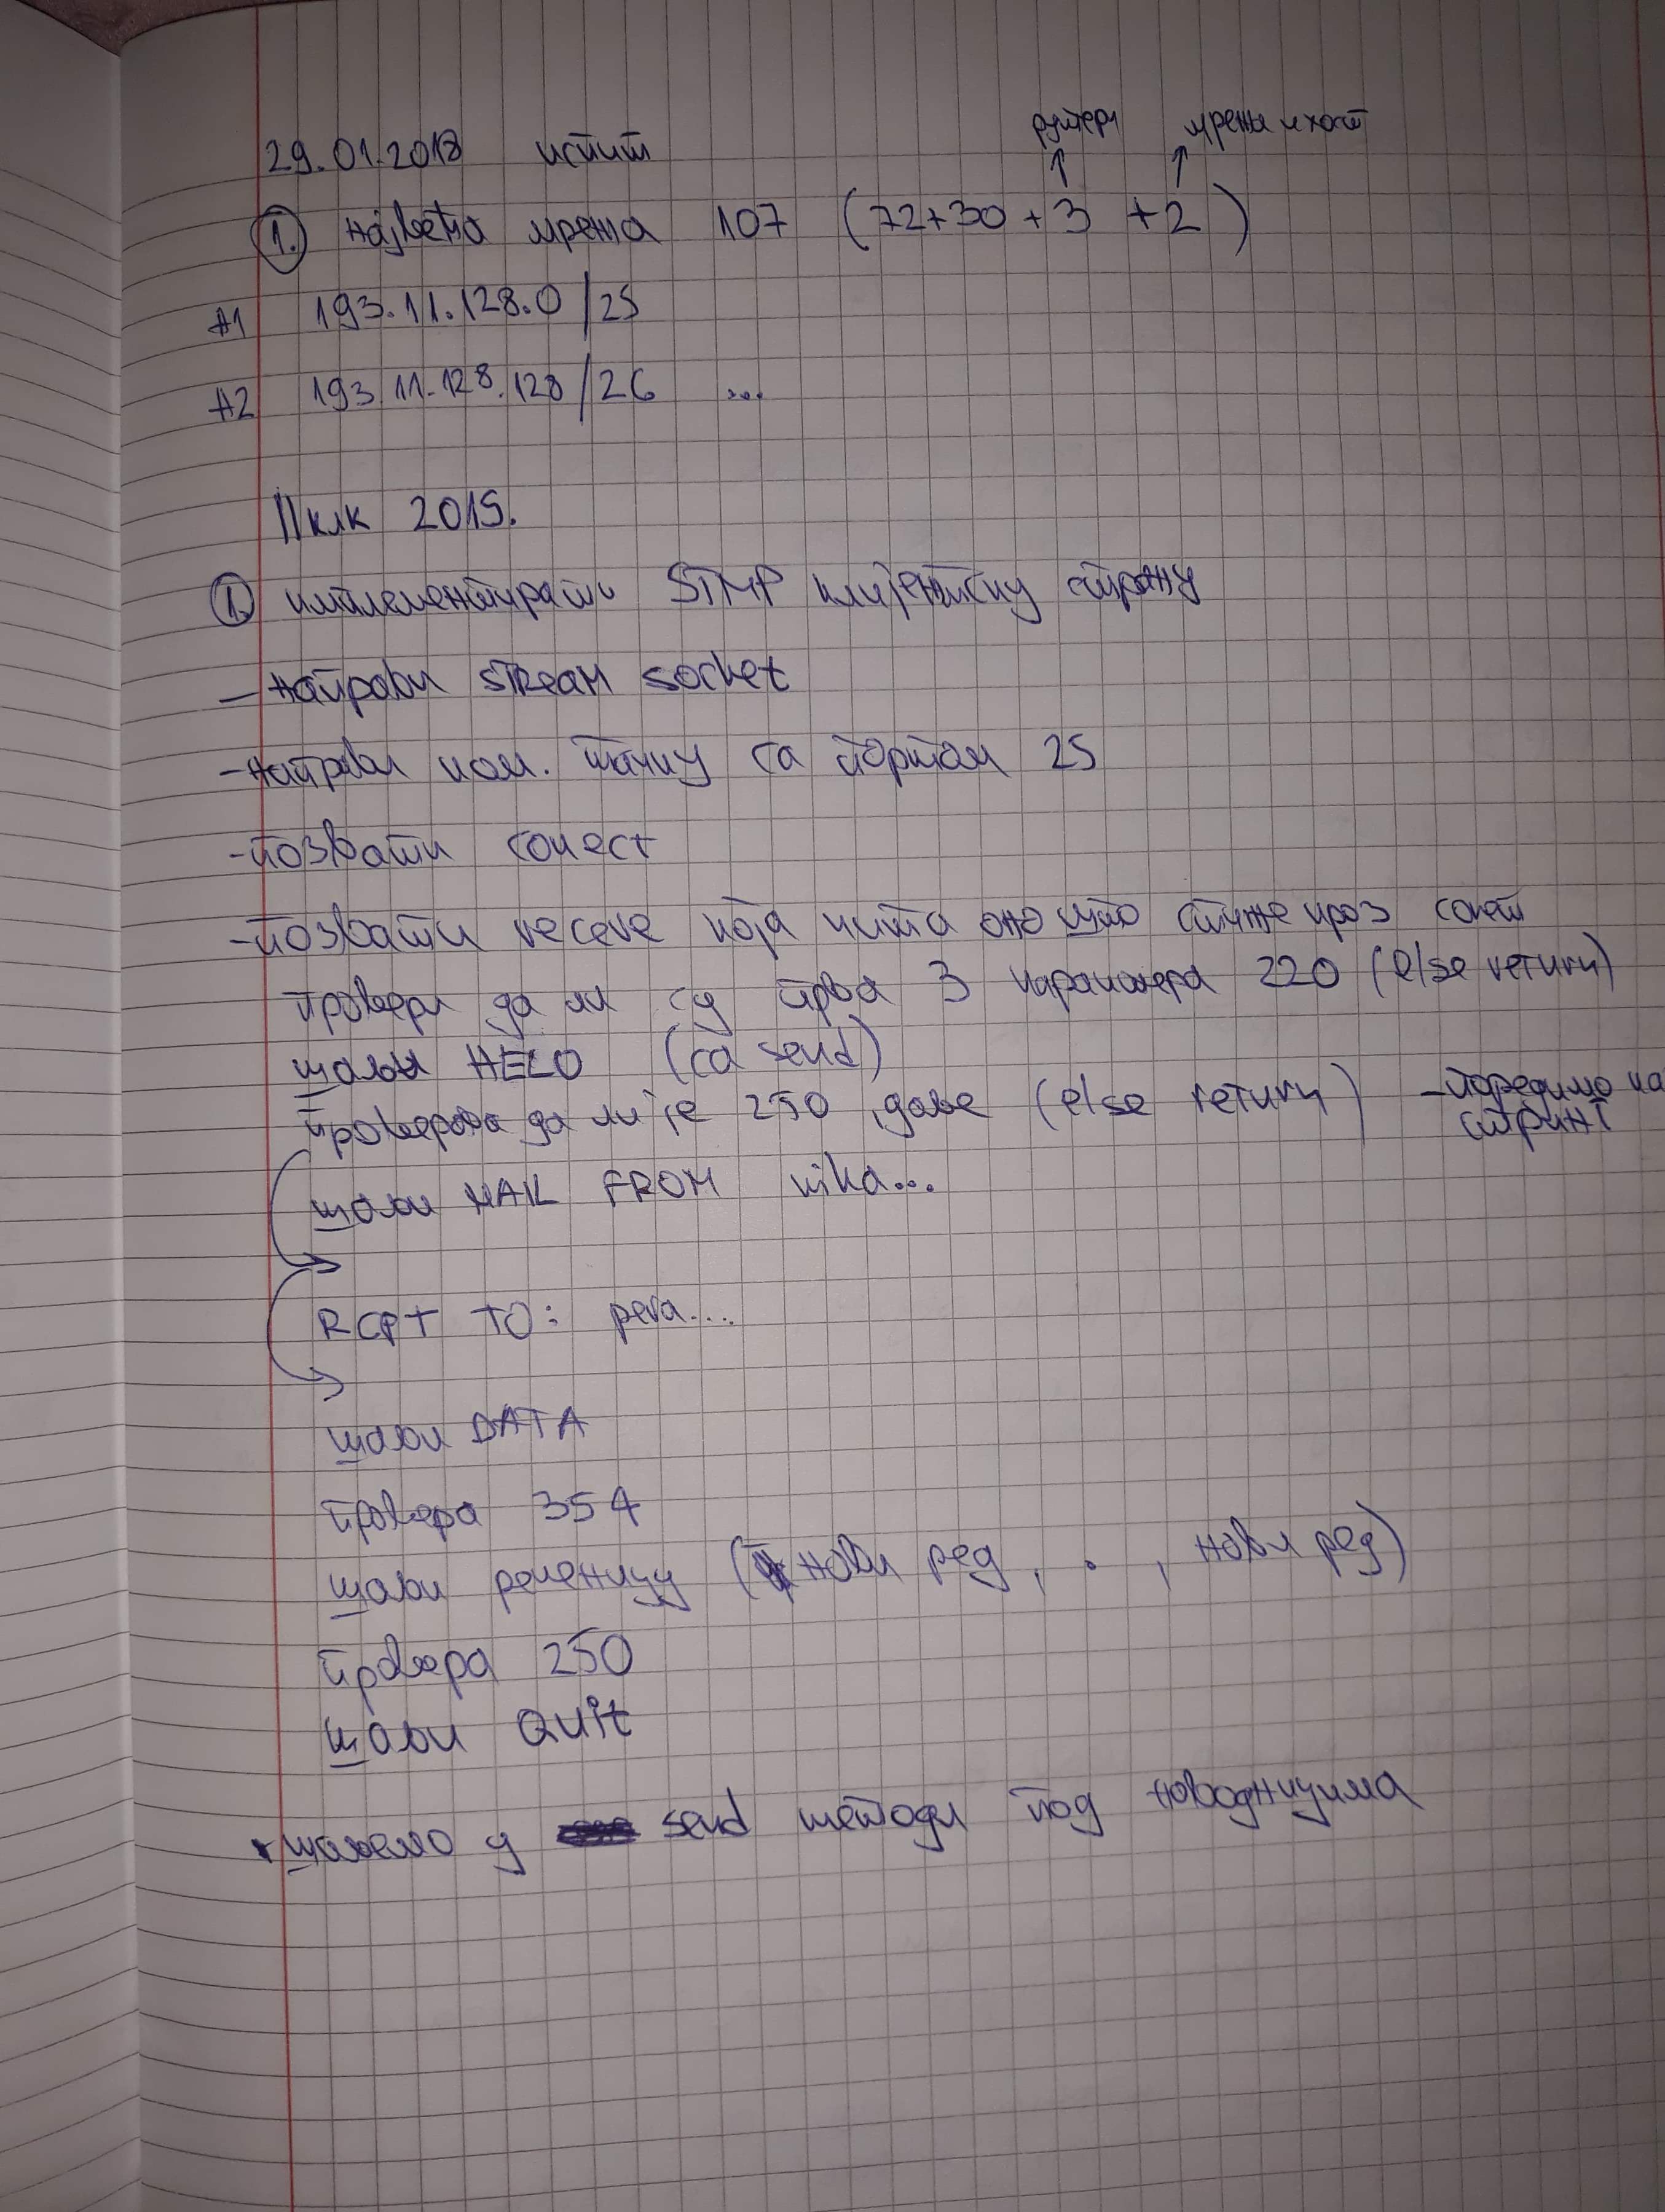 рутери мрежа и хост
29.01.2018 испит
1. највећа мрежа 107 (72+30+3 +2)
A1 193.11.128.0/25
A2 193.11.128.128/26 ...
II клк 2015.
1. имплементирати STMP клијентску страну
- направи STREAM socket
- направи ком. тачку са портом 25
- позвати conect
- позвати receve која чита оно што стигне кроз сокет
провери да ли су прва 3 карактера 220 (else return)
шаљи HELO (са send)
проверава да ли је 250, даље (else return) - поредимо ка стринг
шаљи MAIL FROM nika...
RCPT TO: pera....
шаљи DATA
провера 354
шаљи реченицу (нови ред, . , нови ред)
провера 250
шаљи QUIt
шаљемо у send методи под наводницима